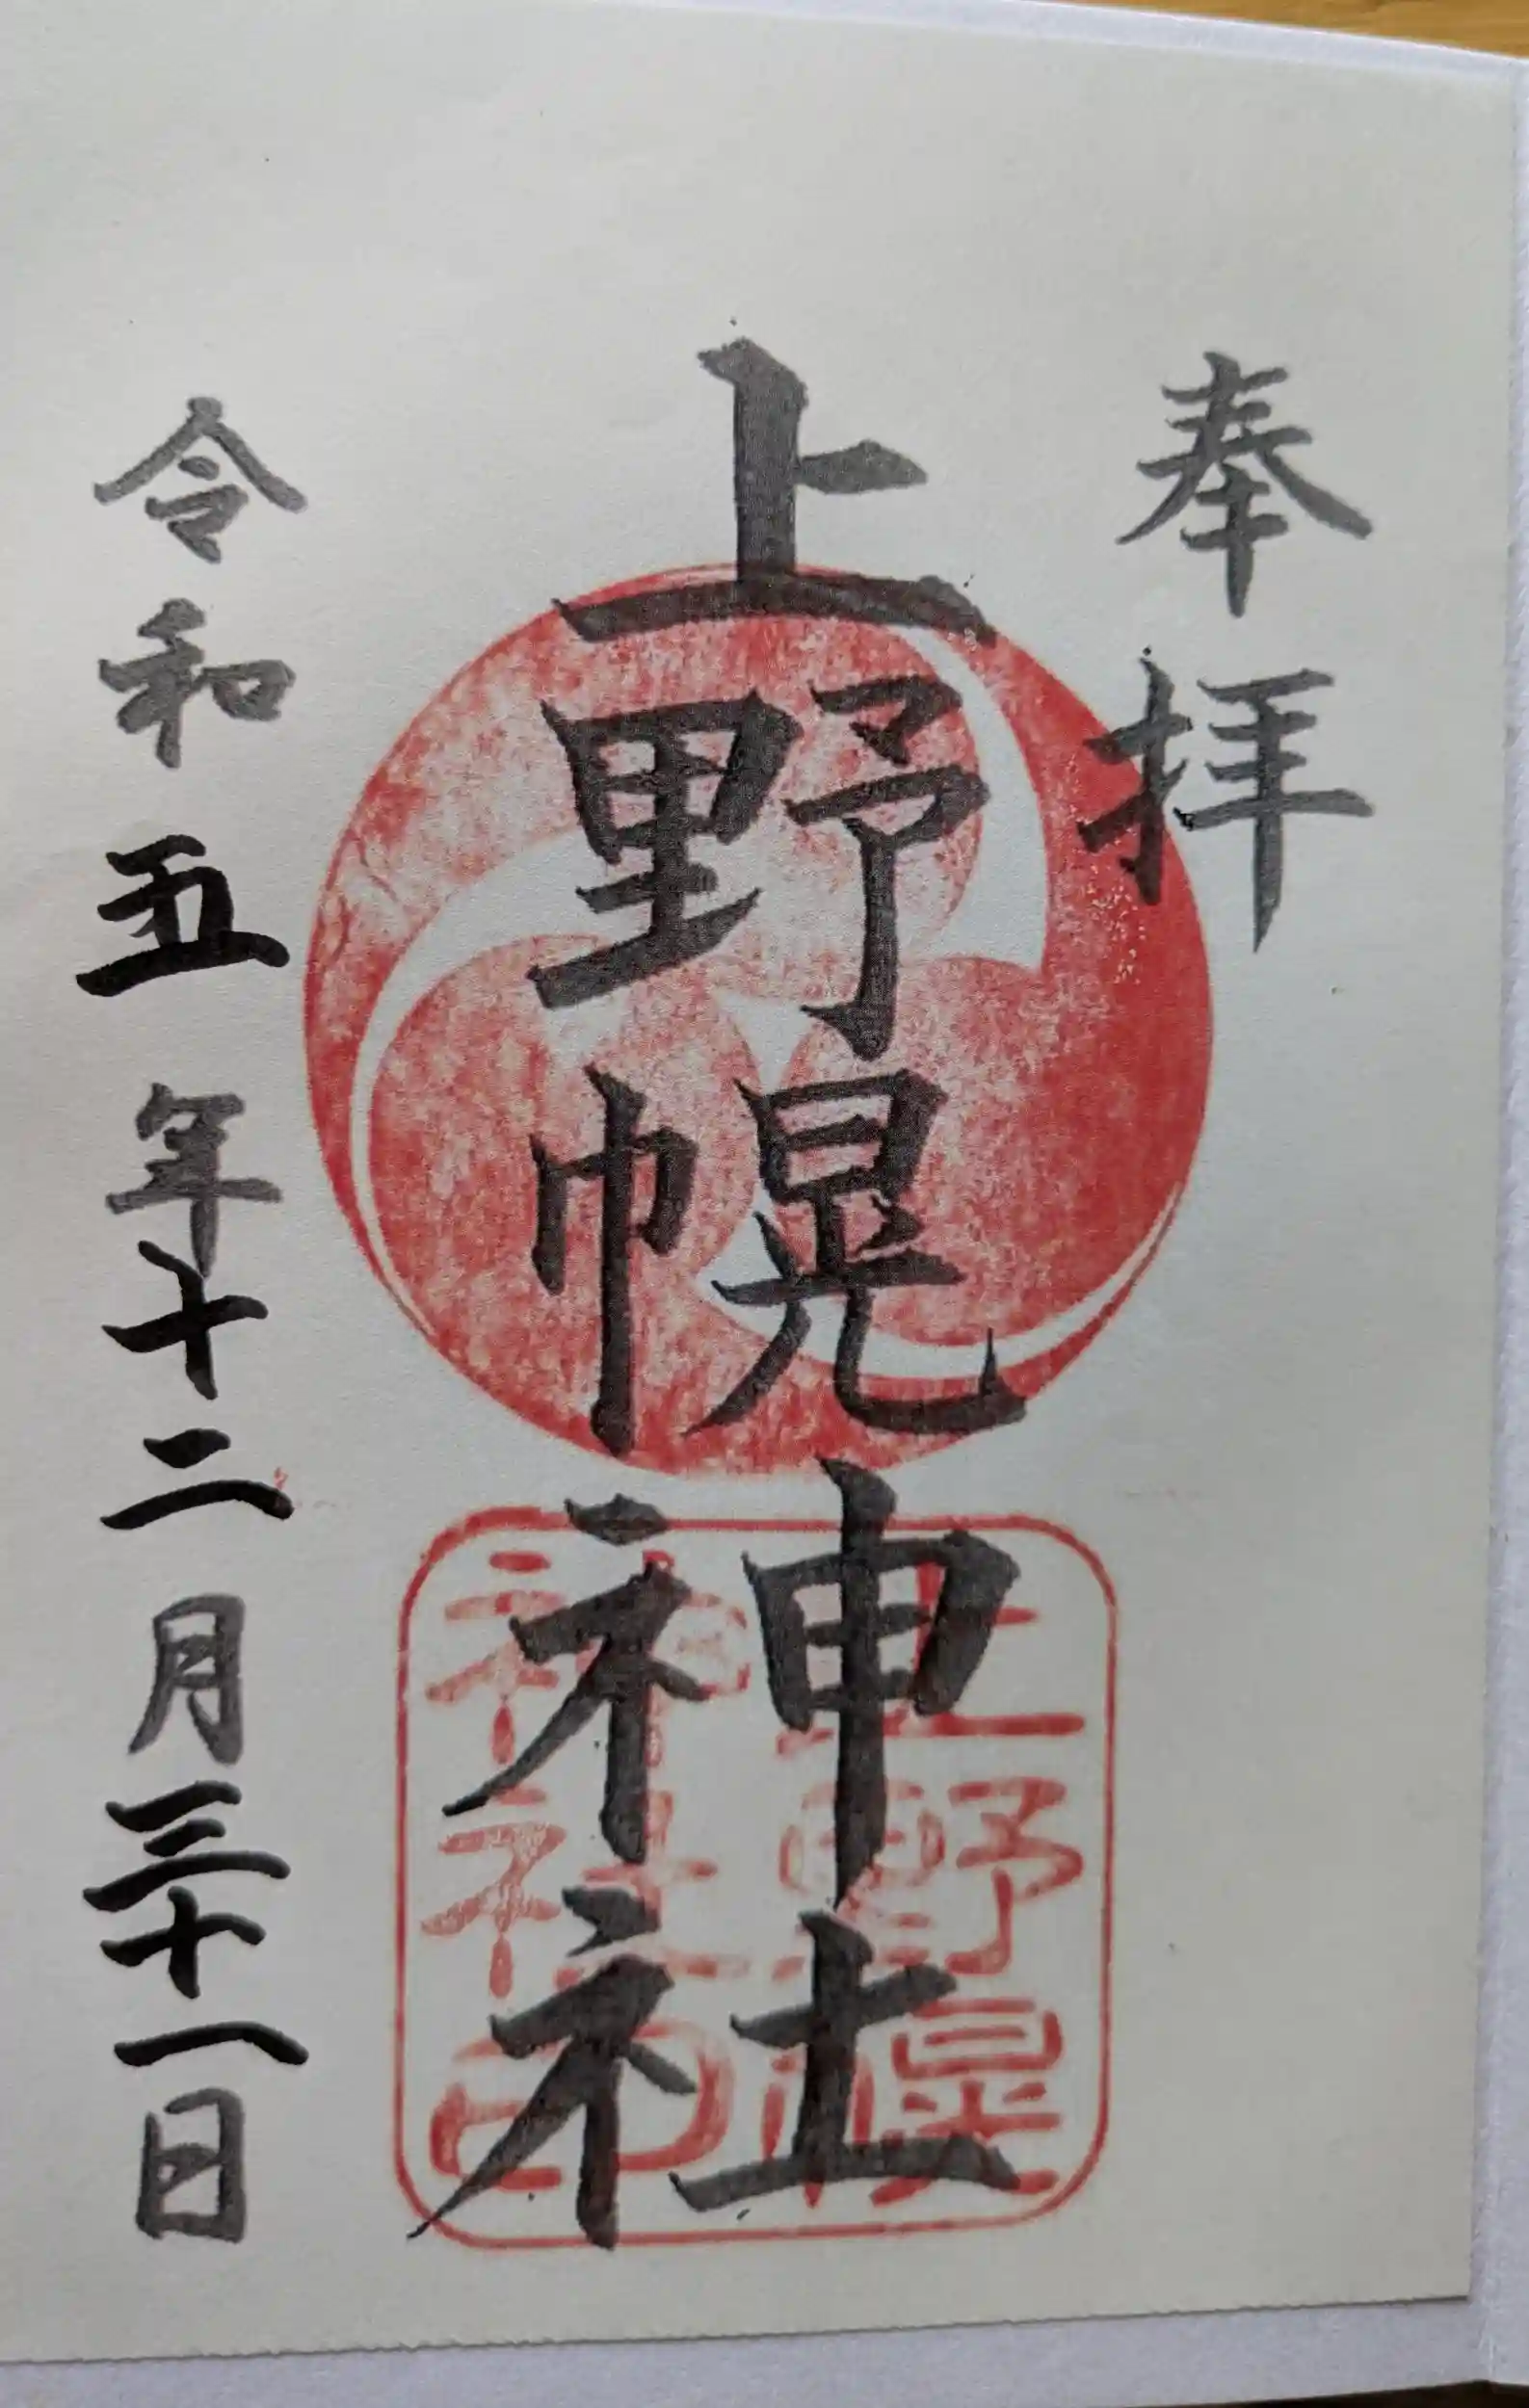 奉拝
上野幌神社
上野幌
神社印
令和五年十二月三十一日